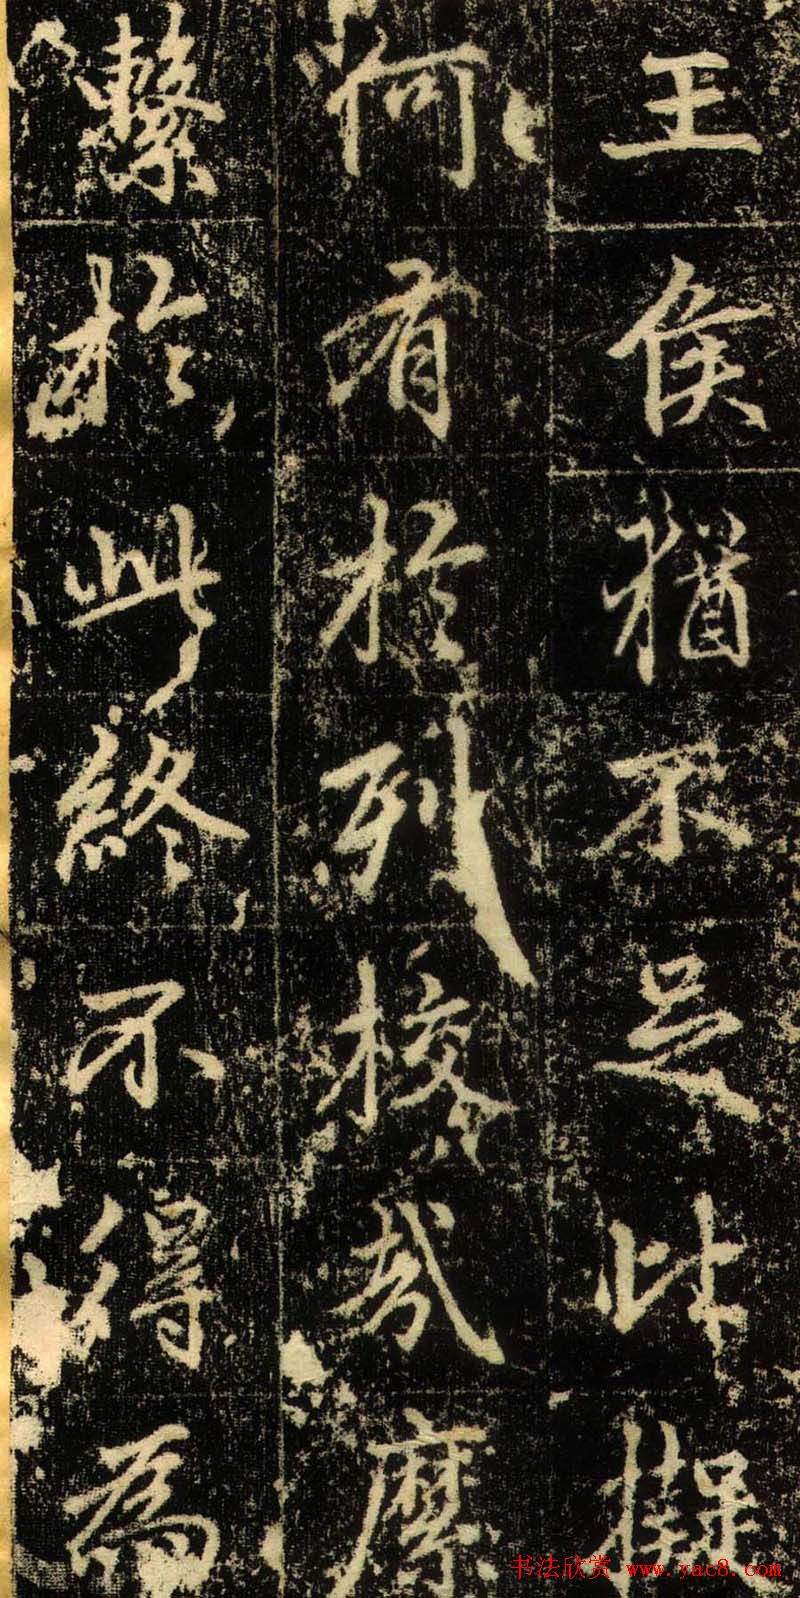 王侯猶不足比擬
何有於列校哉糜
繫於此終不得為
书法欣赏 www.yac8.com